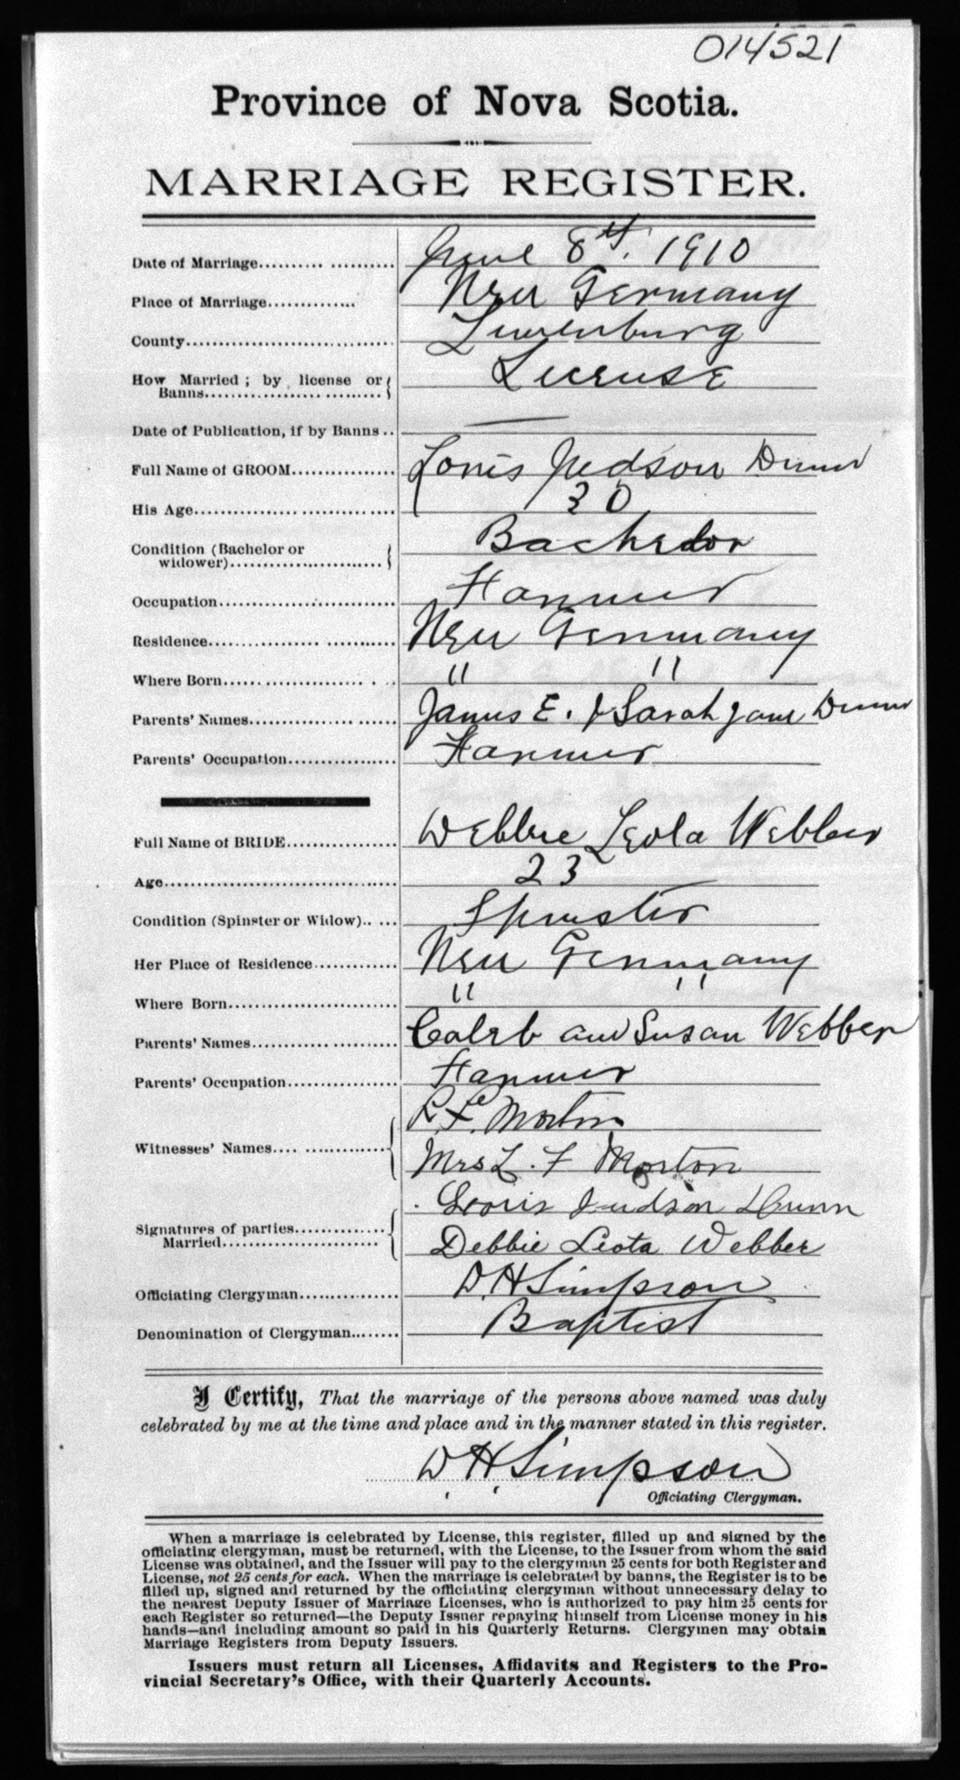 014521
Province of Nova Scotia.
MARRIAGE REGISTER.
Date of Marriage.......... .......... June 8th. 1910
Place of Marriage.............. New Germany
County.............................. Lunenburg
How Married ; by license or Banns.................... License
Date of Publication, if by Banns .. —
Full Name of GROOM................ Louis Judson Dunn
His Age.................. .......... 30
Condition (Bachelor or widower)...................... Bachelor
Occupation.......................... Farmer
Residence................ .......... New Germany
Where Born..................... . .. " "
Parents' Names.............. ...... James E. & Sarah Jane Dunn
Parents' Occupation................ Farmer
Full Name of BRIDE................ Debbie Leola Webber
Age.................................. 23
Condition (Spinster or Widow).. ... Spinster
Her Place of Residence............ New Germany
Where Born........................ " "
Parents' Names.............. ...... Caleb and Susan Webber
Parents' Occupation................ Farmer
Witnesses' Names.... ............ L. F. Morton
Mrs L. F Morton
Signatures of parties Married.............. Louis Judson Dunn
Debbie Leota Webber
Officiating Clergyman............... D. H Simpson
Denomination of Clergyman........ Baptist
I Certify, That the marriage of the persons above named was duly
celebrated by me at the time and place and in the manner stated in this register.
D. H. Simpson
Officiating Clergyman.
When a marriage is celebrated by License, this register, filled up and signed by the
officiating clergyman, must be returned, with the License, to the Issuer from whom the said
License was obtained, and the Issuer will pay to the clergyman 25 cents for both Register and
License, not 25 cents for each. When the marriage is celebrated by banns, the Register is to be
filled up, signed and returned by the officiating clergyman without unnecessary delay to
the nearest Deputy Issuer of Marriage Licenses, who is authorized to pay him 25 cents for
each Register so returned—the Deputy Issuer repaying himself from License money in his
hands—and including amount so paid in his Quarterly Returns. Clergymen may obtain
Marriage Registers from Deputy Issuers.
Issuers must return all Licenses, Affidavits and Registers to the Pro-
vincial Secretary's Office, with their Quarterly Accounts.